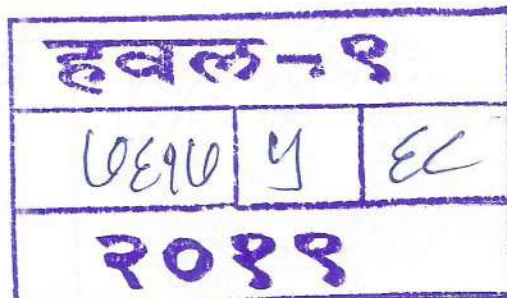 हवल-१
७६१७ ५ ६८
२०११